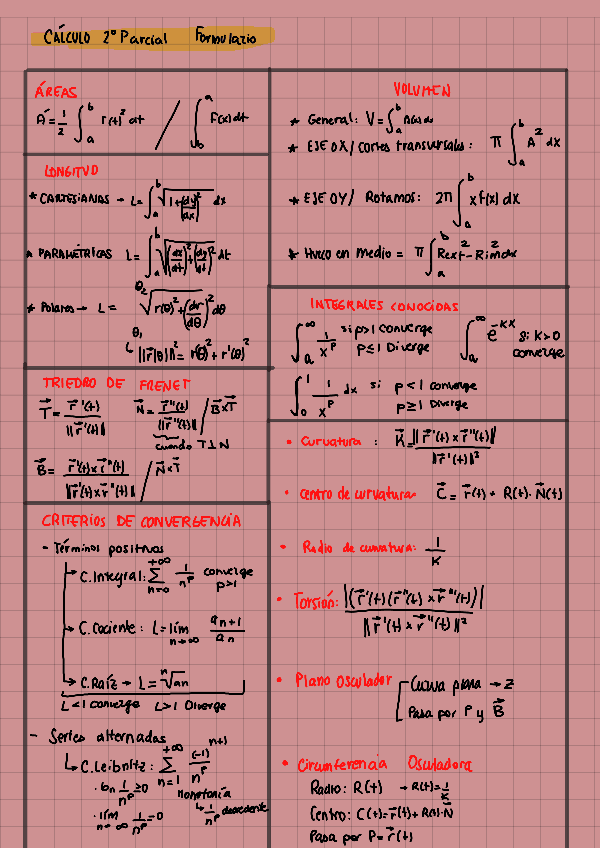 CÁLCULO 2º Parcial Formulario
ÁREAS
A = 1/2 ∫_a^b r(t)² dt / ∫_b^a F(x) dt
LONGITUD
* CARTESIANAS → L = ∫_a^b √(1+(dy/dx)²) dx
* PARAMÉTRICAS L = ∫_a^b √((dx/dt)²+(dy/dt)²) dt
* Polares → L = θ₂ θ₁ √(r(θ)²+(dr/dθ)²) dθ
↳ ||r⃗'(θ)||² = r(θ)² + r'(θ)²
TRIEDRO DE FRENET
T⃗ = r⃗'(t) / ||r⃗'(t)|| N⃗ = r⃗''(t) / ||r⃗''(t)|| / B⃗xT⃗
cuando T⊥N
B⃗ = r⃗'(t) x r⃗''(t) / ||r⃗'(t) x r⃗''(t)|| / N⃗xT⃗
CRITERIOS DE CONVERGENCIA
- Términos positivos
→ C.Integral: Σ_{n=0}^{+∞} 1/n^p converge p>1
→ C.Cociente: L = lím_{n→∞} a_{n+1}/a_n
→ C.Raíz → L = ⁿ√an
L<1 converge L>1 Diverge
- Series alternadas
↳ C.Leibnitz: Σ_{n=1}^{+∞} (-1)^{n+1}/n^p
· bn 1/n^p ≥0 Monotonía
· lím_{n→∞} 1/n^p =0 ↳ 1/n^p decredente
VOLUMEN
* General: V = ∫_a^b A(x)dx
* EJE OX/ cortes transversales: π ∫_a^b A² dx
* EJE OY/ Rotamos: 2π ∫_a^b x f(x) dx
* Hueco en medio = π ∫_a^b Rext² - Rim² dx
INTEGRALES CONOCIDAS
∫_a^∞ 1/x^p si p>1 converge p≤1 Diverge ∫_a^∞ e^{-kx} si k>0 converge
∫_0^1 1/x^p dx si p<1 converge p≥1 Diverge
• Curvatura: K⃗ = ||r⃗'(t) x r⃗''(t)|| / ||r⃗'(t)||²
• centro de curvatura C⃗ = r⃗(t) + R(t)·N⃗(t)
• Radio de curvatura: 1/K
• Torsión: |(r⃗'(t)(r⃗''(t) x r⃗'''(t))| / ||r⃗'(t) x r⃗''(t)||²
• Plano Osculador Curva plana → Z
Pasa por P y B⃗
• Circunferencia Osculadora
Radio: R(t) → R(t)=1/K
Centro: C(t)=r⃗(t)+R(t)·N⃗
Pasa por P=r⃗(t)